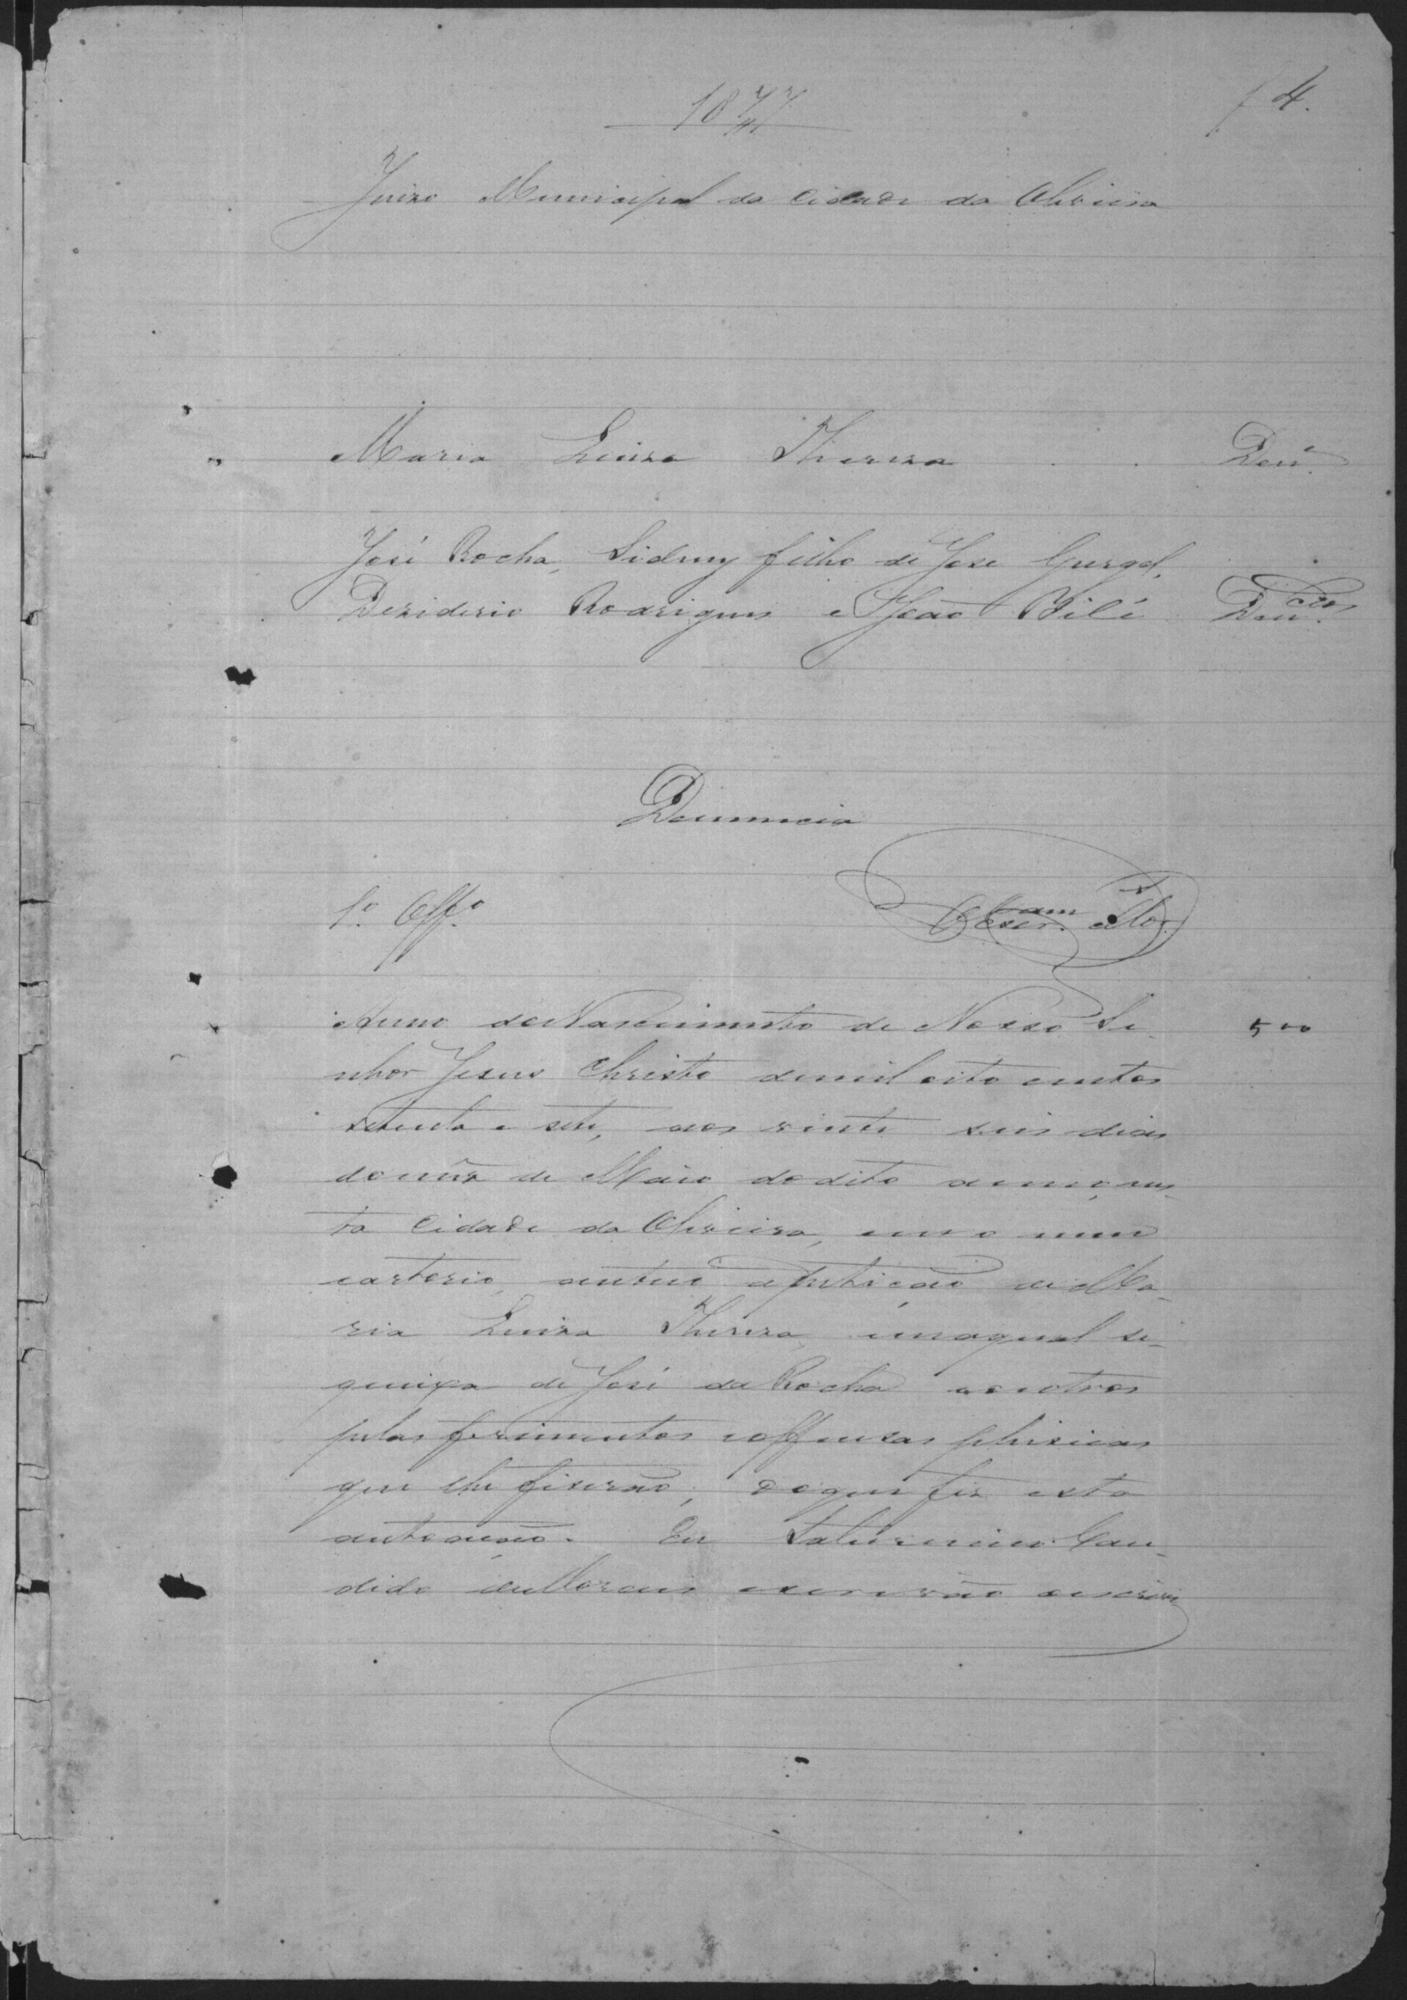 1877
f 4.
Juizo Municipal da Cidade da Oliveira
Maria Luiza Thereza . . Den.
José Rocha, Sidney filho de Jose Gurgel,
Desiderio Rodrigues e João Bilé Den.cos
Denuncia
1.º Off.º
Escr.am Mor.
Anno do Nascimento de Nosso Se-
500
nhor Jesus Christo de mil oito centos
setenta e sete, aos vinte seis dias
do mez de Maio do dito anno, nes-
ta Cidade da Oliveira, em o meu
cartorio, autuo a petição de Ma-
ria Luiza Thereza, em a qual se
queixa de José da Rocha e outros
pelos ferimentos e offensas phisicas
que lhe fizerão, do que fiz esta
autoação. Eu Saturnino Can-
dido de Moraes escrivão escrevi